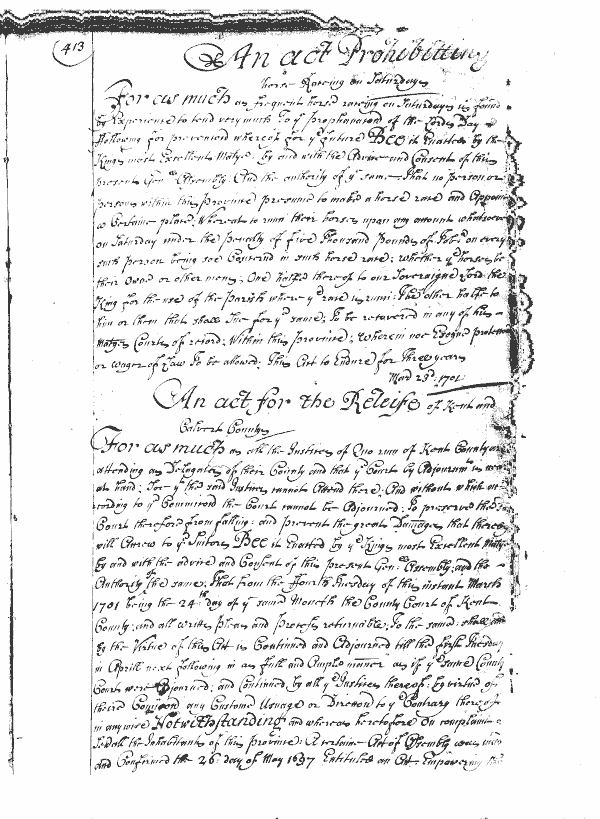 413
An act Prohibitting
horse Raceing on Saturdays
For as much as frequent horse raceing on Saturdays is found
by Experience to tend very much To ye prophanation of the Lords Day
Following for prevencon whereof for ye future Bee it Enacted by the
Kings most Excellent Matye. by and with the Advice and Consent of this
present Genll Assembly. And the authority of ye same That no person or
persons within this Province presume to make a horse race and Appoint
a Certaine place; Whereat to runn their horses upon any amount whatsoever
on Saturday under the penalty of five Thousand Pounds of Tobco on every
such person being soe Concernd in such horse race; whether ye horses be
their Owne or other mens; One halfe thereof to our Soveraigne Lord the
King for the use of the Parish where ye race is runn: The other halfe to
him or them that shall Sue for ye same; To be recovered in any of his
Matyes Courts of record; Within this Province; Wherein noe Essoyne protection
or wager of Law To be allowed; This Act to Endure for Three years
Mar 25th. 1701
An act for the Releife of Kent and
Calvert County
For as much as all the Justices of Quo rum of Kent County are
attending as Delegates of their County and that ye Court by Adjournmt is near
at hand; Soe yt the said Justices cannot Attend there; And without which ac-
cording to ye Commicond the Court cannot be Adjourned; To preserve the sd
Court therefore from falling: and prevent the great Damages that thereby
will Accrew to ye Suitors Bee it Enacted by ye Kings most Excellent Matye
by and with the advice and Consent of this present Genll Assembly; and the
Authority of the same; That from the Fourth Tuesday of this instant March
1701 being the 24th day of ye same Moneth the County Court of Kent
County; and all writts pleas and process returnable. To the same: shall and
by the Virtue of this Act is Continued and Adjourned till the first Tuesday
in Aprill next following in as full and Ample manner as if ye same County
Court were Adjourned; and Continued by all ye Justices thereof: by virtue of
their any Custome Usuage or to ye Contrary thereof
in any wise Notwithstanding and whereas heretofore On complaint
of the Inhabitants of this Province: A certaine Act of Assembly was made
and Confirmed the 26th day of May 1697 Entituled an Act Empowering the